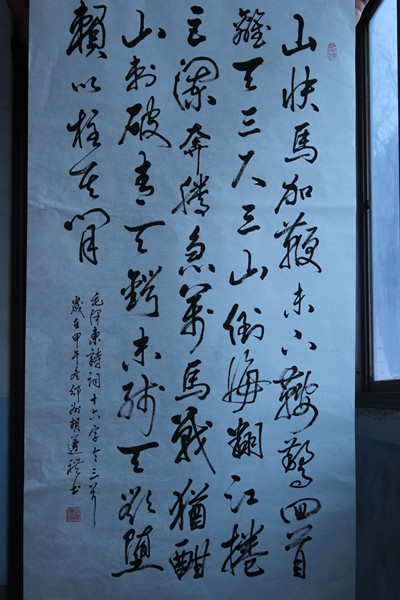 山快馬加鞭未下鞍驚回首
離天三尺三山倒海翻江捲
巨瀾奔騰急萬馬戰猶酣
山刺破青天鍔未殘天欲墮
賴以柱其間
毛澤東詩詞十六字令三首
歲在甲午冬胡書